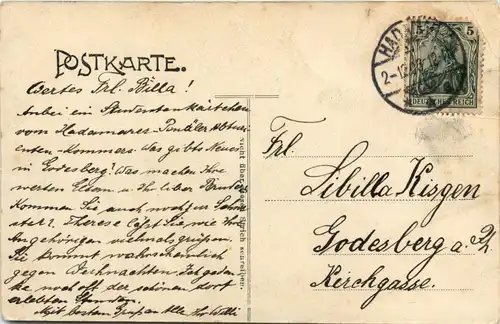 POSTKARTE.
Wertes Frl. Billa!
Anbei ein Studentenkärtchen
vom Hadamarer Pennäler Abturi-
enten-Kommers. Was gibt Neues
in Godesberg? Was machen Ihre
werten Eltern u. Ihr lieber Bruder
Kommen Sie auch noch zur Schwe
ster? Therese läßt Sie wie Ihre
Angehörigen vielmals grüßen.
Sie kommt wahrscheinlich
gegen Weihnachten. Ich geden
ke noch oft der schönen dort
erlebten Stunden.
Mit bestem Gruß an Alle Ihr
nicht über diesen Strich schreiben.
HADAMAR
5 5
DEUTSCHES REICH
Frl.
Sibilla Kirgen
Godesberg a. Rh
Kirchgasse.